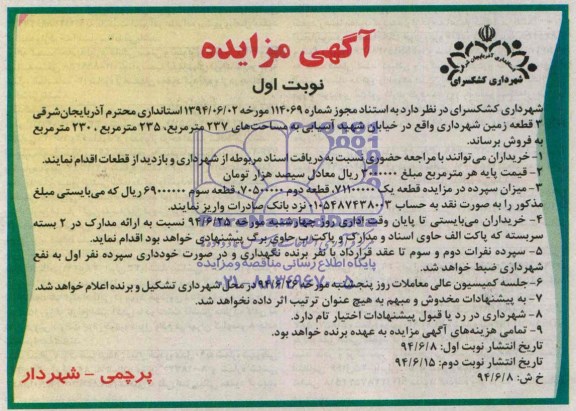 آگهی مزایده
نوبت اول
شهرداری کشکسرای
شهرداری کشکسرای در نظر دارد به استناد مجوز شماره ۱۱۴۰۶۹ مورخه ۱۳۹۴/۰۶/۰۲ استانداری محترم آذربایجان‌شرقی
۳ قطعه زمین شهرداری واقع در خیابان شهید آبسایی به مساحت‌های ۲۳۷ مترمربع، ۲۳۵ مترمربع، ۲۳۰ مترمربع
به فروش برساند.
۱- خریداران می‌توانند با مراجعه حضوری نسبت به دریافت اسناد مربوطه از شهرداری و بازدید از قطعات اقدام نمایند.
۲- قیمت پایه هر مترمربع مبلغ ۳۰۰۰۰۰۰ ریال معادل سیصد هزار تومان
۳- میزان سپرده در مزایده قطعه یک ۷۱۱۰۰۰۰۰، قطعه دوم ۷۰۵۰۰۰۰۰، قطعه سوم ۶۹۰۰۰۰۰۰ ریال که می‌بایستی مبلغ
مذکور را به صورت نقد به حساب ۰۱۰۵۴۸۷۴۳۸۰۰۳ نزد بانک صادرات واریز نمایند.
۴- خریداران می‌بایستی تا پایان وقت اداری روز چهارشنبه مورخه ۹۴/۶/۲۵ نسبت به ارائه مدارک در ۲ بسته
سربسته که پاکت الف حاوی اسناد و مدارک و پاکت ب حاوی برگ پیشنهادی خواهد بود اقدام نماید.
۵- سپرده نفرات دوم و سوم تا عقد قرارداد با نفر برنده نگهداری و در صورت خودداری سپرده نفر اول به نفع
شهرداری ضبط خواهد شد.
۶- جلسه کمیسیون عالی معاملات روز پنجشنبه مورخه ۹۴/۶/۲۶ در محل شهرداری تشکیل و برنده اعلام خواهد شد.
۷- به پیشنهادات مخدوش و مبهم به هیچ عنوان ترتیب اثر داده نخواهد شد.
۸- شهرداری در رد یا قبول پیشنهادات اختیار تام دارد.
۹- تمامی هزینه‌های آگهی مزایده به عهده برنده خواهد بود.
تاریخ انتشار نوبت اول: ۹۴/۶/۸
تاریخ انتشار نوبت دوم: ۹۴/۶/۱۵
خ ش: ۹۴/۶/۸
پرچمی - شهردار
پایگاه اطلاع رسانی مناقصه و مزایده